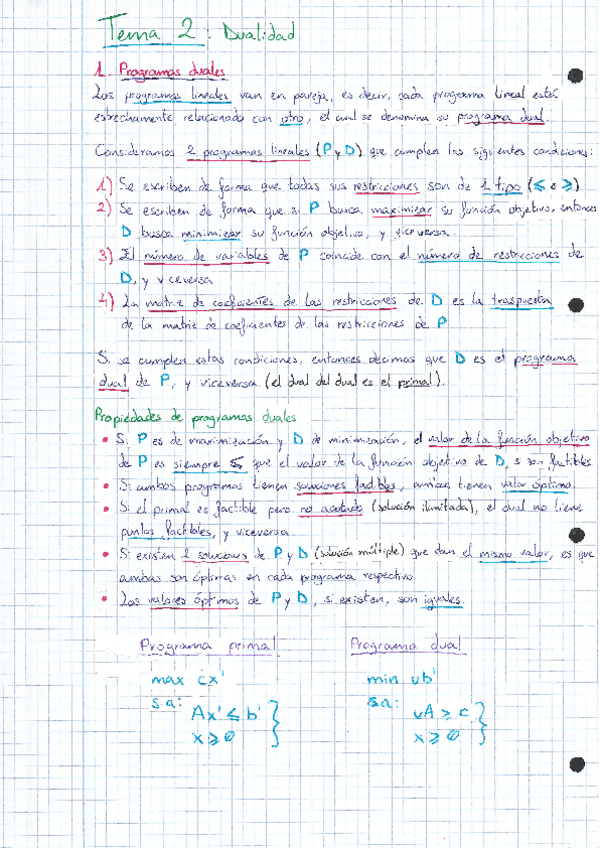 Tema 2: Dualidad
1. Programas duales
Los programas lineales van en pareja, es decir, cada programa lineal está
estrechamente relacionado con otro, el cual se denomina su programa dual.
Consideramos 2 programas lineales (P y D) que cumplen las siguientes condiciones:
1) Se escriben de forma que todas sus restricciones son de 1 tipo (≤ o ≥)
2) Se escriben de forma que si P busca maximizar su función objetivo, entonces
D busca minimizar su función objetivo, y viceversa.
3) El número de variables de P coincide con el número de restricciones de
D, y viceversa
4) La matriz de coeficientes de las restricciones de D es la traspuesta
de la matriz de coeficientes de las restricciones de P
Si se cumplen estas condiciones, entonces decimos que D es el programa
dual de P, y viceversa (el dual del dual es el primal).
Propiedades de programas duales
• Si P es de maximización y D de minimización, el valor de la función objetivo
de P es siempre ≤ que el valor de la función objetivo de D, si son factibles
• Si ambos programas tienen soluciones factibles, ambos tienen valor óptimo.
• Si el primal es factible pero no acotado (solución ilimitada), el dual no tiene
puntos factibles, y viceversa.
• Si existen 2 soluciones de P y D (solución múltiple) que dan el mismo valor, es que
ambas son óptimas en cada programa respectivo
• Los valores óptimos de P y D, si existen, son iguales.
Programa primal Programa dual
max cx' min ub'
s.a: s.a:
Ax' ≤ b' uA ≥ c
x ≥ 0 x ≥ 0